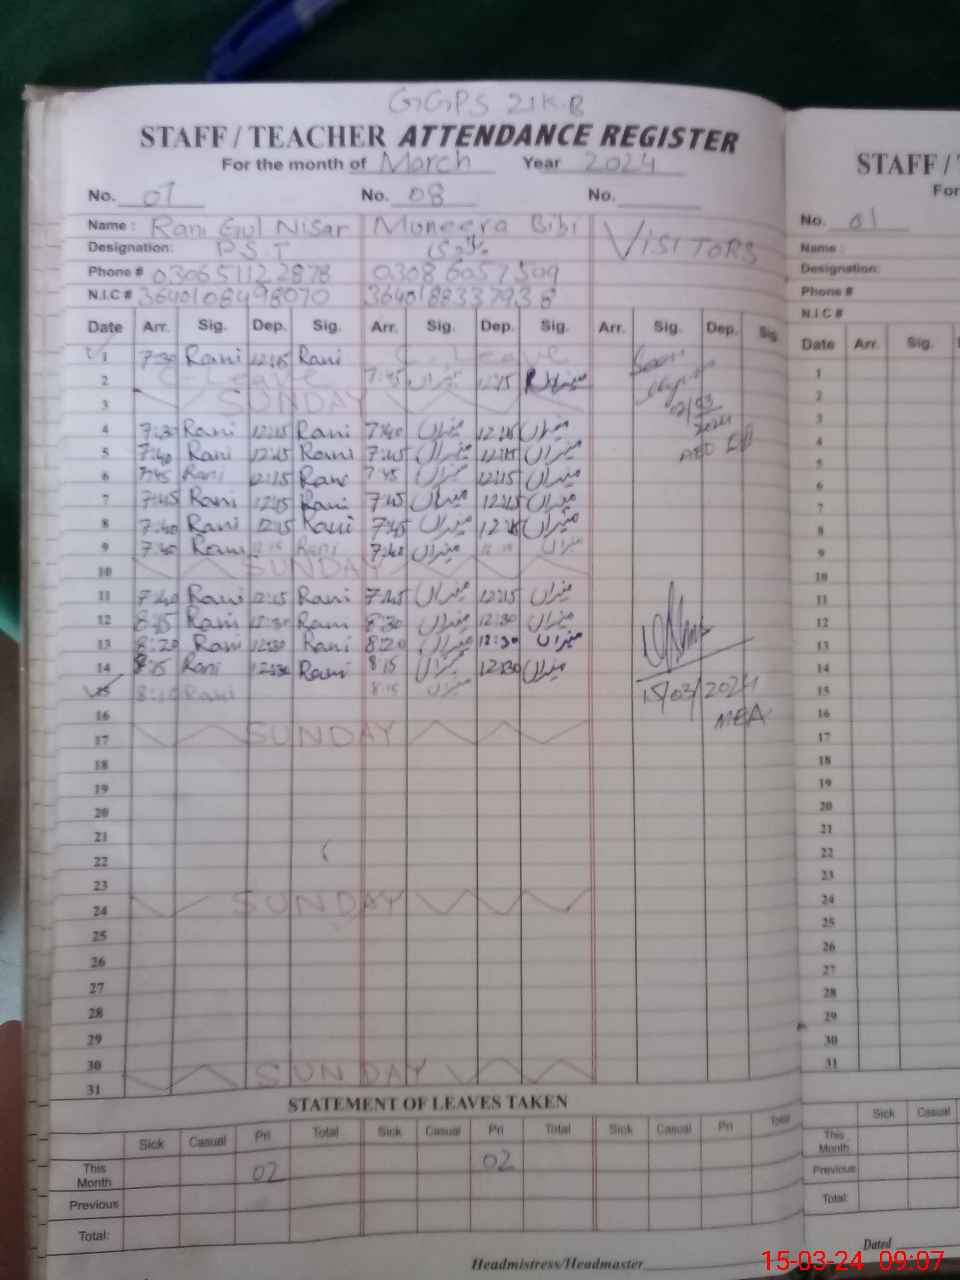 GGPS 21K.B
STAFF / TEACHER ATTENDANCE REGISTER
For the month of March Year 2024
No. 07 No. 08 No.
Name : Rani Gul Nisar Muneera Bibi VISITORS
Designation: P.S.T
Phone # 03065112 2878 0308 6057509
N.I.C # 3640108498070 3640188337938
Date Arr. Sig. Dep. Sig. Arr. Sig. Dep. Sig. Arr. Sig. Dep. Sig.
1 7:30 Rani 12:15 Rani C-Leave
2 C-Leave 7:45 میراں 12:15 میراں
02/03
3 SUNDAY
2024
4 7:30 Rani 12:15 Rani 7:40 میراں 12:15 میراں
5 7:40 Rani 12:15 Rani 7:45 میراں 12:15 میراں
6 7:45 Rani 12:15 Rani 7:45 میراں 12:15 میراں
7 7:45 Rani 12:15 Rani 7:45 میراں 12:15 میراں
8 7:40 Rani 12:15 Rani 7:45 میراں 12:15 میراں
9 7:40 Rani 12:15 Rani 7:40 میراں 12:15 میراں
10 SUNDAY
11 7:40 Rani 12:15 Rani 7:45 میراں 12:15 میراں
12 8:15 Rani 12:30 Rani 8:30 میراں 12:30 میراں
13 8:20 Rani 12:30 Rani 8:20 میراں 12:30 میراں
14 8:15 Rani 12:30 Rani 8:15 میراں 12:30 میراں
15 8:10 Rani 8:15 میراں 15/03/2024
16 MEA
17 SUNDAY
18
19
20
21
22
23
24 SUNDAY
25
26
27
28
29
30
31 SUNDAY
STATEMENT OF LEAVES TAKEN
Sick Casual Pri Total Sick Casual Pri Total Sick Casual Pri Total
This Month 02 02
Previous
Total:
Headmistress/Headmaster
STAFF /
For
No. 01
Name :
Designation:
Phone #
N.I.C #
Date Arr. Sig.
1
2
3
4
5
6
7
8
9
10
11
12
13
14
15
16
17
18
19
20
21
22
23
24
25
26
27
28
29
30
31
Sick Casual
This Month
Previous
Total:
Dated
15-03-24 09:07